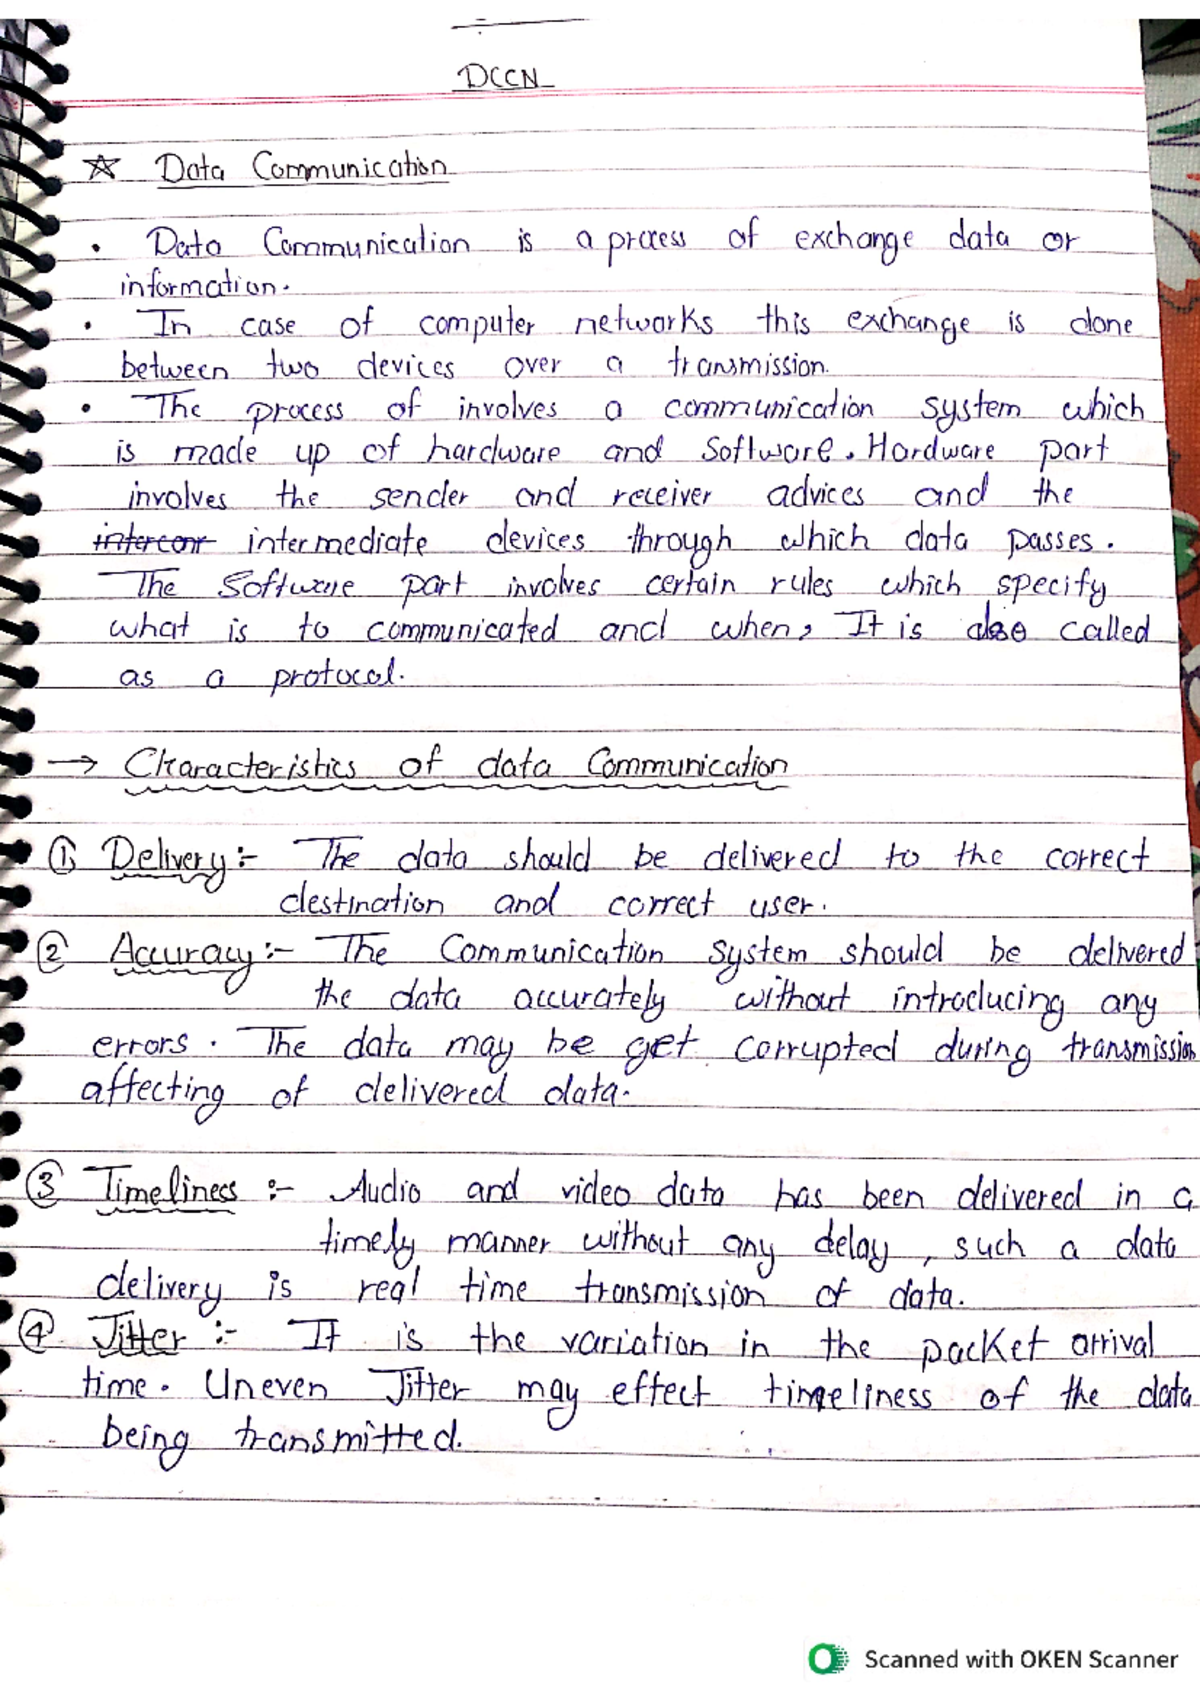 DCCN
☆ Data Communication
• Data Communication is a process of exchange data or
information.
• In case of computer networks this exchange is done
between two devices over a transmission.
• The process of involves a communication system which
is made up of hardware and Software. Hardware part
involves the sender and receiver advices and the
interconr intermediate devices through which data passes.
The Software part involves certain rules which specify
what is to communicated and when, It is also called
as a protocol.
→ Characteristics of data Communication
① Delivery :- The data should be delivered to the correct
destination and correct user.
② Accuracy :- The Communication System should be delivered
the data accurately without introducing any
errors. The data may be get corrupted during transmission
affecting of delivered data.
③ Timeliness :- Audio and video data has been delivered in a
timely manner without any delay, such a data
delivery is real time transmission of data.
④ Jitter :- It is the variation in the packet arrival
time. Uneven Jitter may effect timeliness of the data
being transmitted.
Scanned with OKEN Scanner